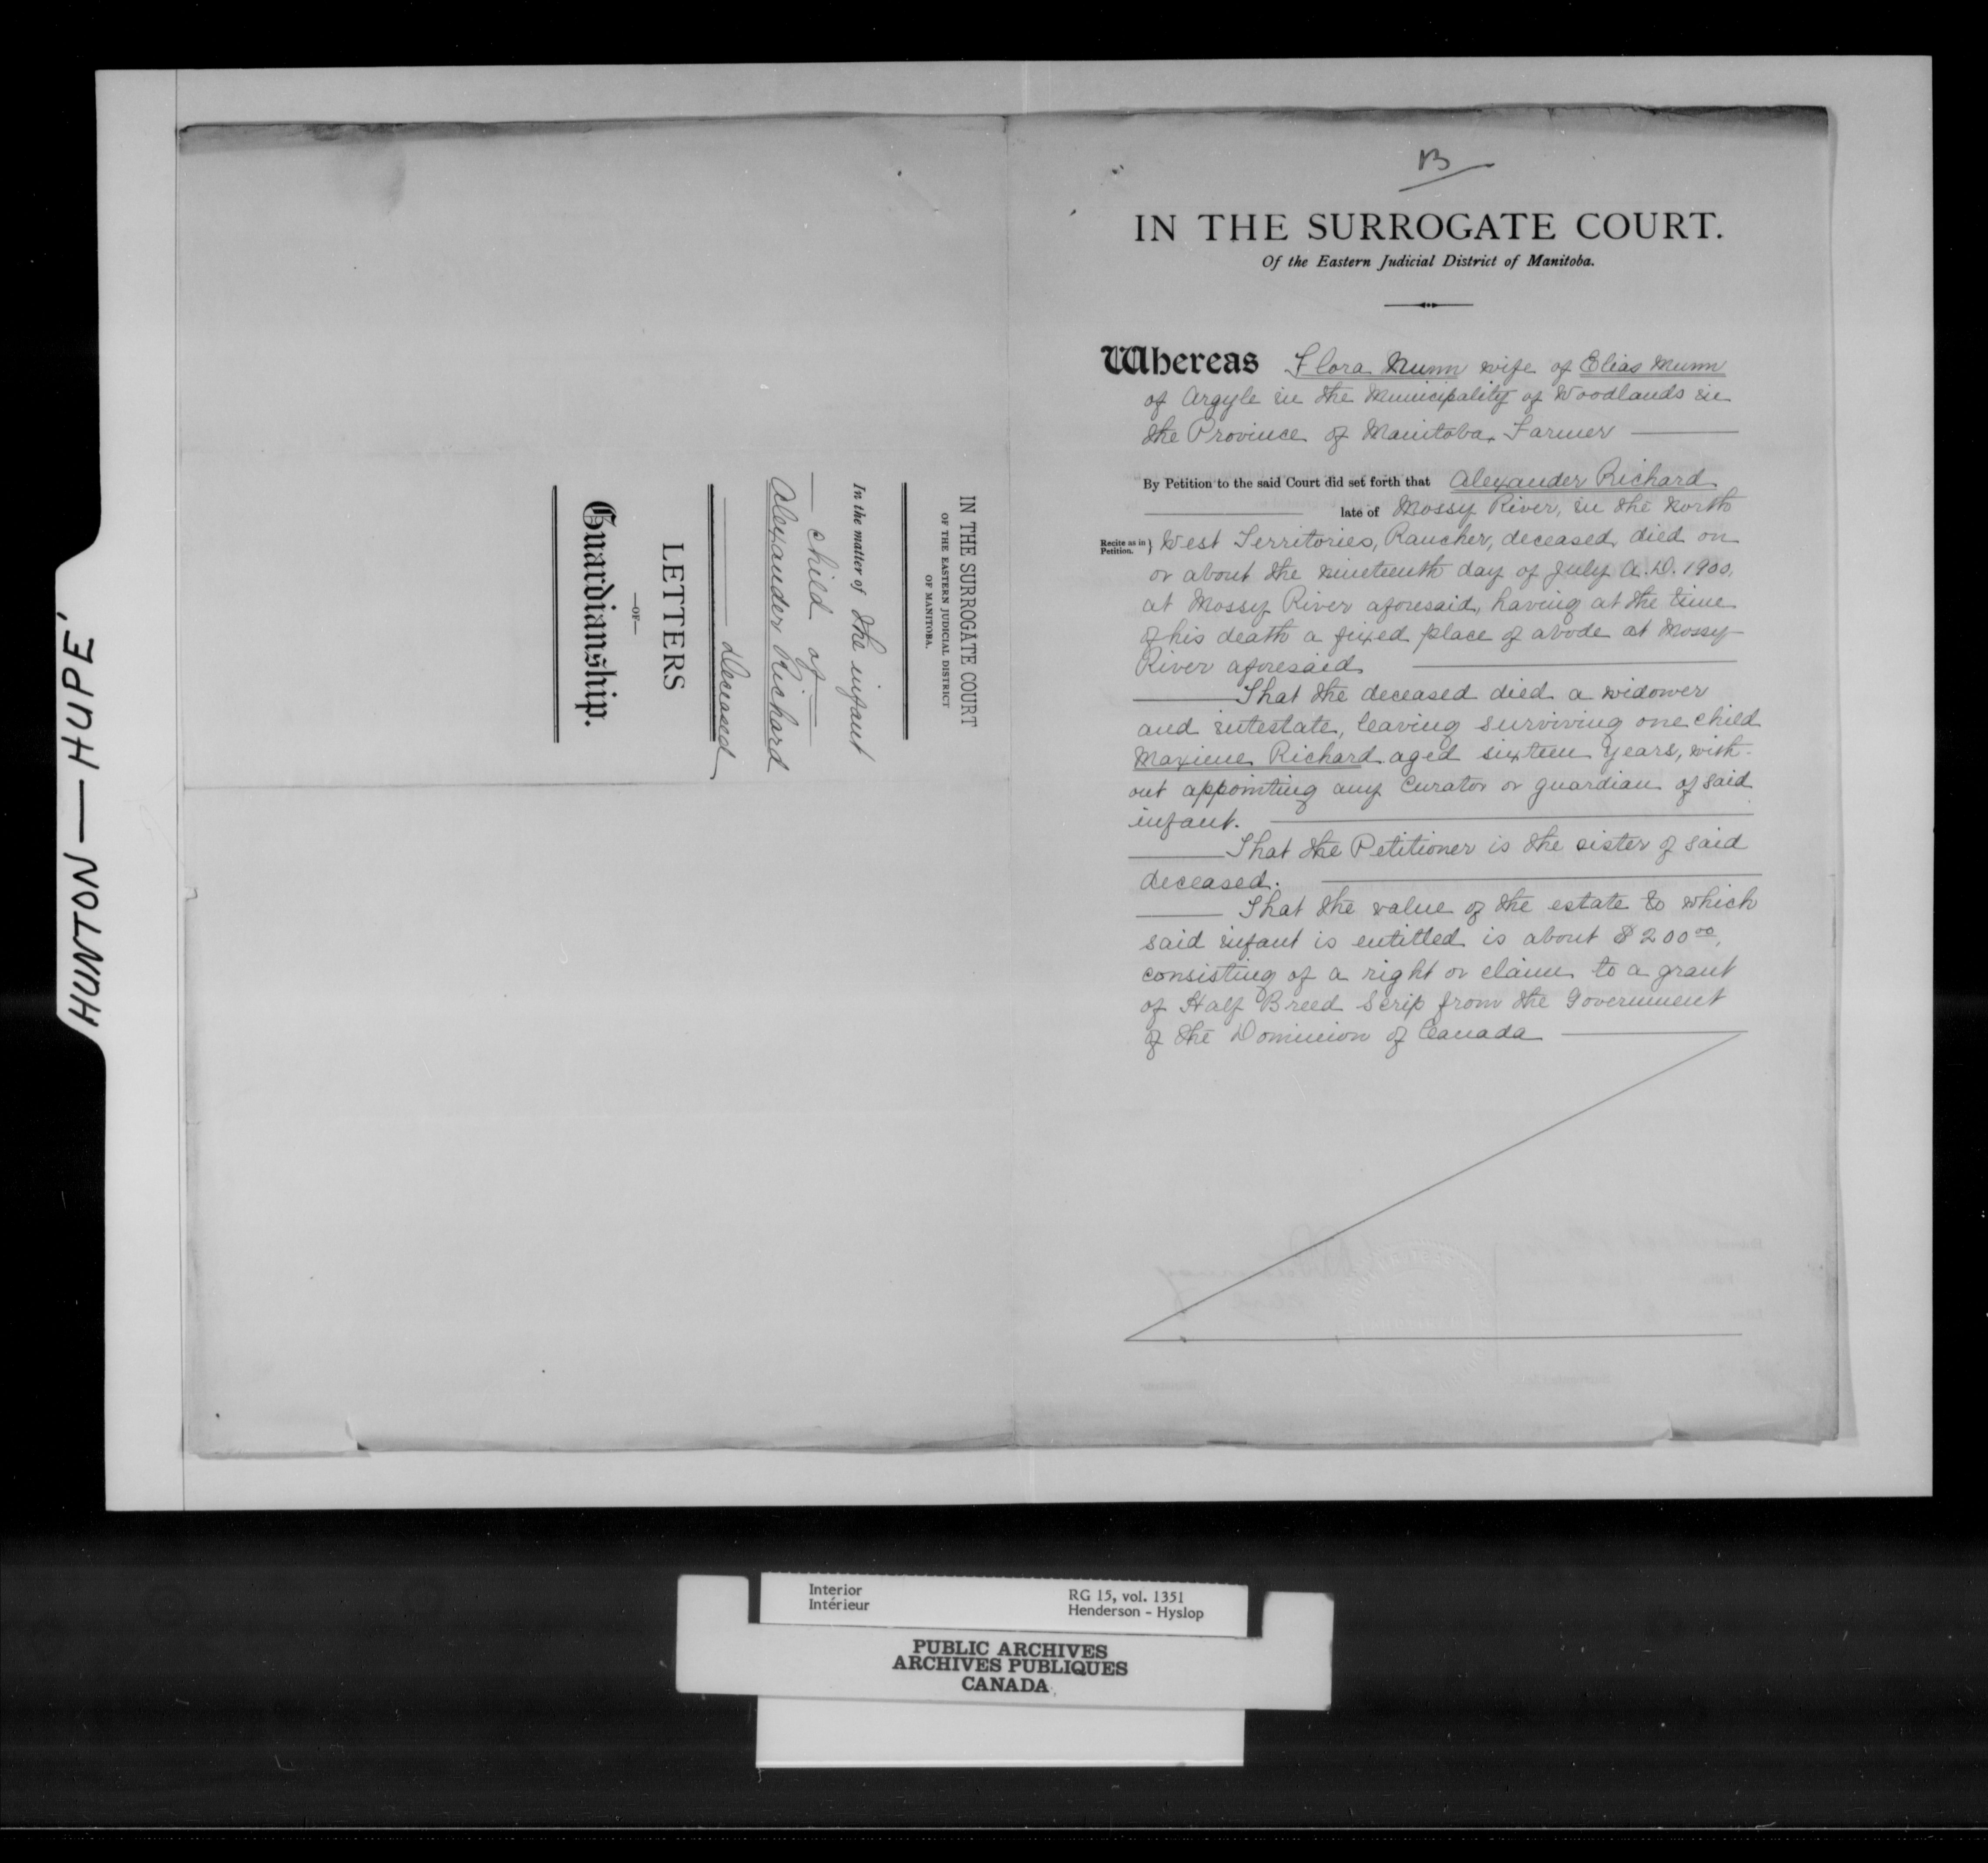 HUNTON — HUPE'
IN THE SURROGATE COURT
OF THE EASTERN JUDICIAL DISTRICT
OF MANITOBA.
In the matter of the infant
— child of —
Alexander Richard
deceased
LETTERS
—OF—
Guardianship.
B
IN THE SURROGATE COURT.
Of the Eastern Judicial District of Manitoba.
Whereas Flora Munn wife of Elias Munn
of Argyle in the Municipality of Woodlands in
the Province of Manitoba, Farmer
By Petition to the said Court did set forth that Alexander Richard
late of Mossy River, in the North
Recite as in Petition. } West Territories, Rancher, deceased, died on
or about the nineteenth day of July A.D. 1900,
at Mossy River aforesaid, having at the time
of his death a fixed place of abode at Mossy
River aforesaid
That the deceased died a widower
and intestate, leaving surviving one child
Maxime Richard aged sixteen years, with-
out appointing any Curator or guardian of said
infant.
That the Petitioner is the sister of said
deceased.
That the value of the estate to which
said infant is entitled is about $200 00,
consisting of a right or claim to a grant
of Half Breed Scrip from the Government
of the Dominion of Canada
Interior RG 15, vol. 1351
Intérieur Henderson - Hyslop
PUBLIC ARCHIVES
ARCHIVES PUBLIQUES
CANADA